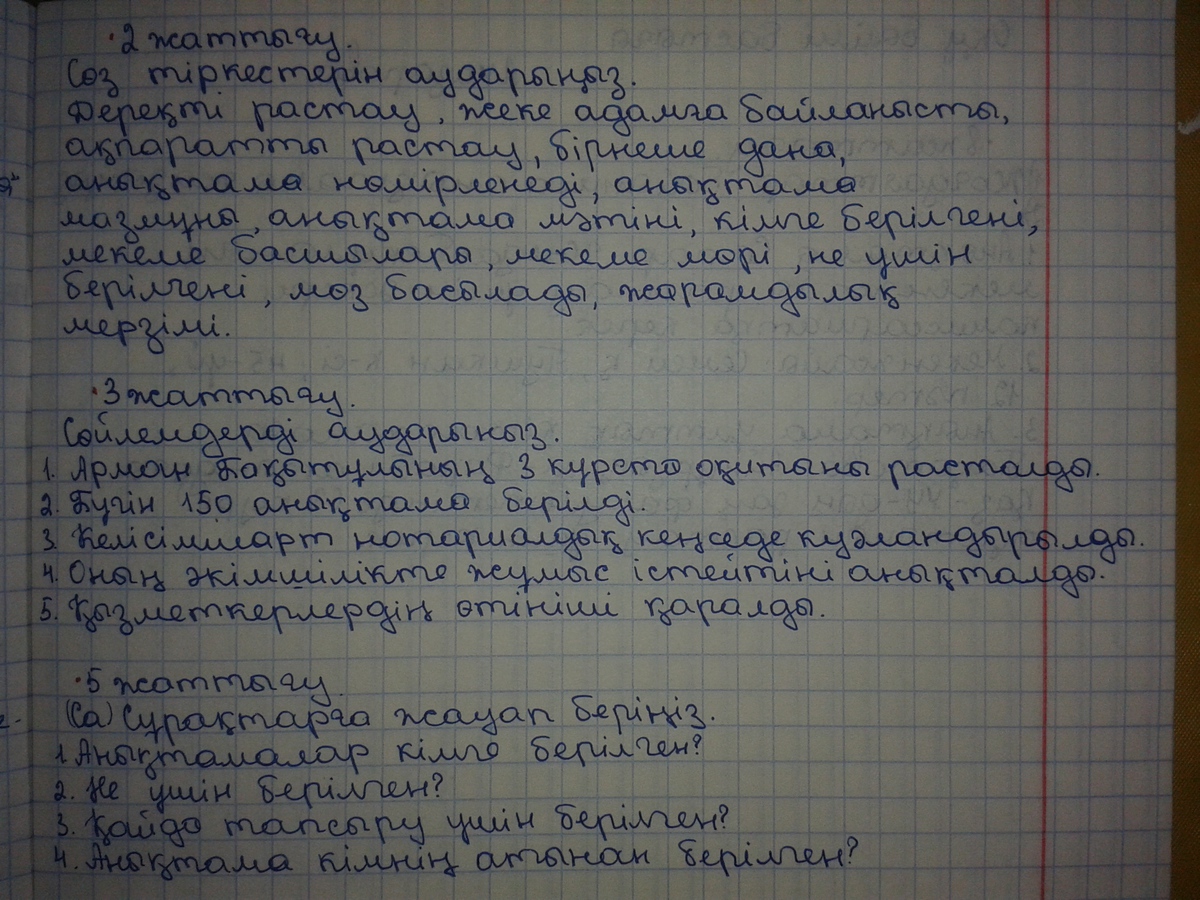 2 жаттығу.
Сөз тіркестерін аударыңыз.
Деректі растау, жеке адамға байланысты,
ақпаратты растау, бірнеше дана,
анықтама нөмірленеді, анықтама
мазмұны, анықтама мәтіні, кімге берілгені,
мекеме басшылары, мекеме мөрі, не үшін
берілгені, мөз басылады, жарамдылық
мерзімі.
3 жаттығу.
Сөйлемдерді аударыңыз.
1. Арман Бақытұлының 3 курста оқитыны расталды.
2. Бүгін 150 анықтама берілді.
3. Келісімшарт нотариалдық кеңседе куәландырылды.
4. Оның әкімшілікте жұмыс істейтіні анықталды.
5. Қызметкерлердің өтініші қаралды.
5 жаттығу.
(Са) Сұрақтарға жауап беріңіз.
1. Анықтамалар кімге берілген?
2. Не үшін берілген?
3. Қайда тапсыру үшін берілген?
4. Анықтама кімнің атынан берілген?